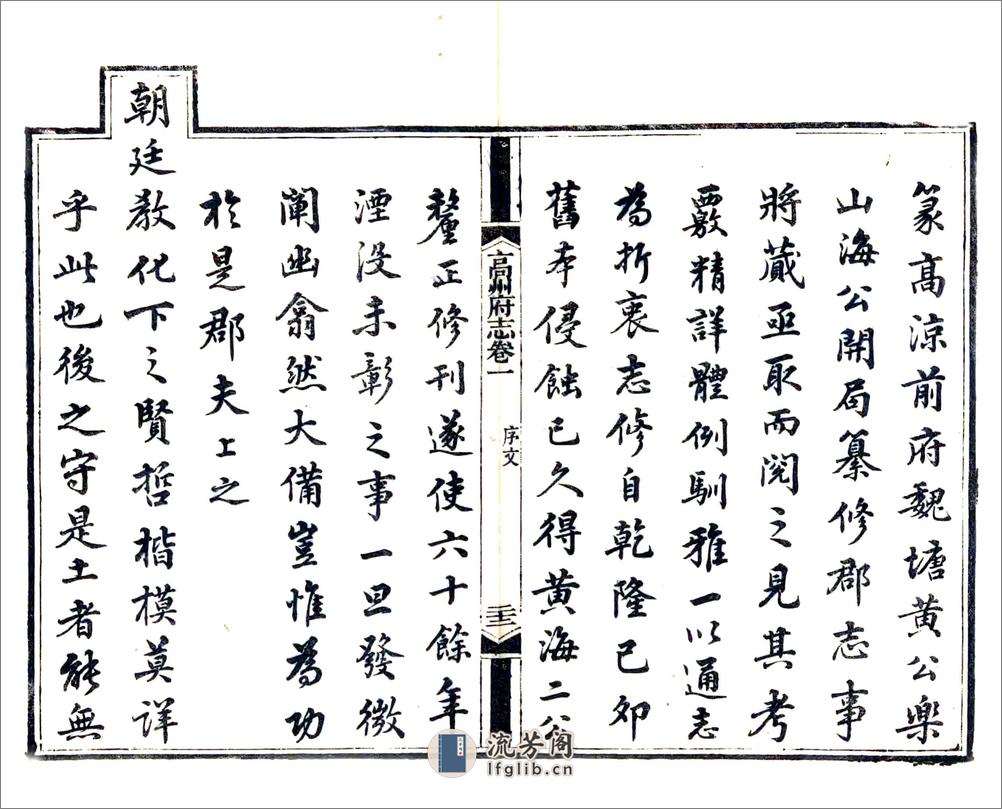 篆高涼前府魏塘黄公樂
山海公開局纂修郡志事
將蕆亟取而閱之見其考
覈精詳體例馴雅一以通志
為折衷志修自乾隆己卯
舊本侵蝕已久得黄海二公
高州府志卷一
序文
三十三
釐正修刊遂使六十餘年
湮没未彰之事一旦發微
闡幽翕然大備豈惟為功
於是郡夫上之
朝廷教化下之賢哲楷模莫詳
乎此也後之守是土者能無
流芳阁
lfglib.cn